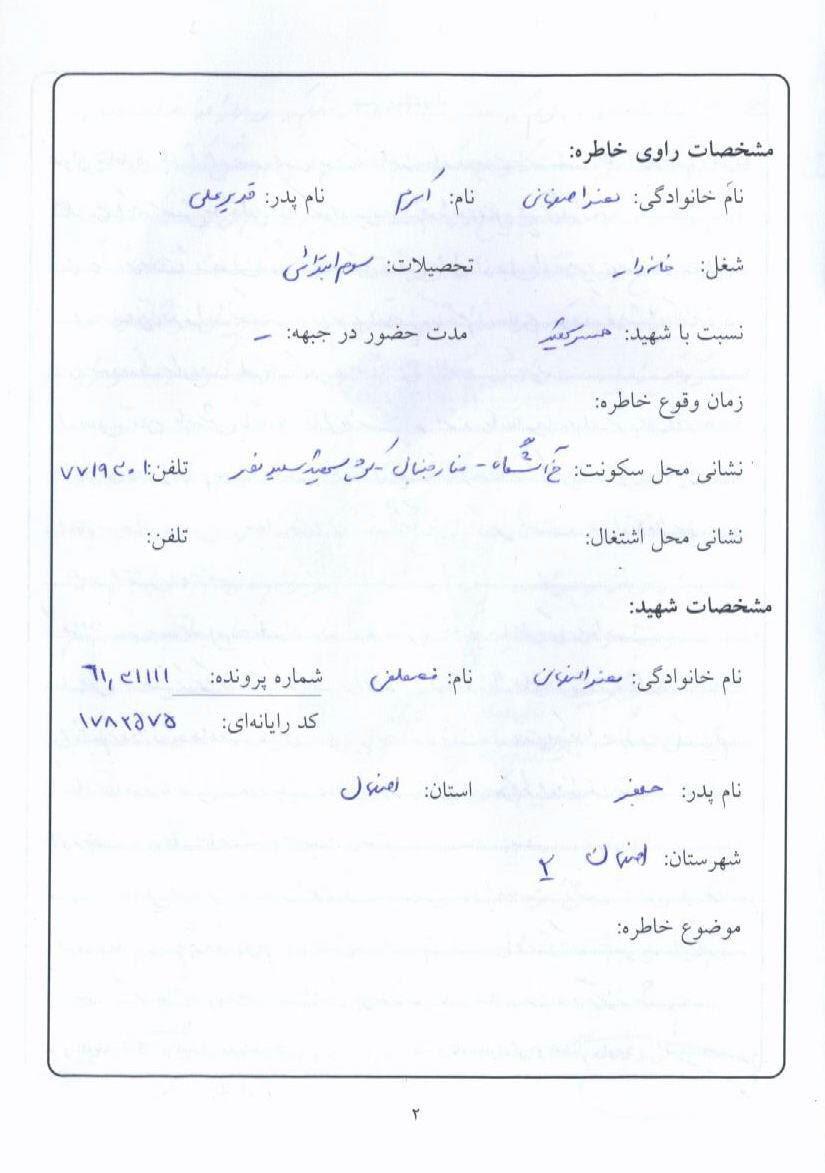 مشخصات راوی خاطره:
نام خانوادگی: معتبر اصفهانی نام: اکرم نام پدر: قدیرعلی
شغل: خانه‌دار تحصیلات: سوم ابتدائی
نسبت با شهید: همسر شهید مدت حضور در جبهه: –
زمان وقوع خاطره:
نشانی محل سکونت: تلفن:
نشانی محل اشتغال: تلفن:
مشخصات شهید:
نام خانوادگی: نام: مصطفی شماره پرونده:
کد رایانه‌ای: ۱۷۸۲۵۷۵
نام پدر: جعفر استان: اصفهان
شهرستان: اصفهان ۲
موضوع خاطره:
۲